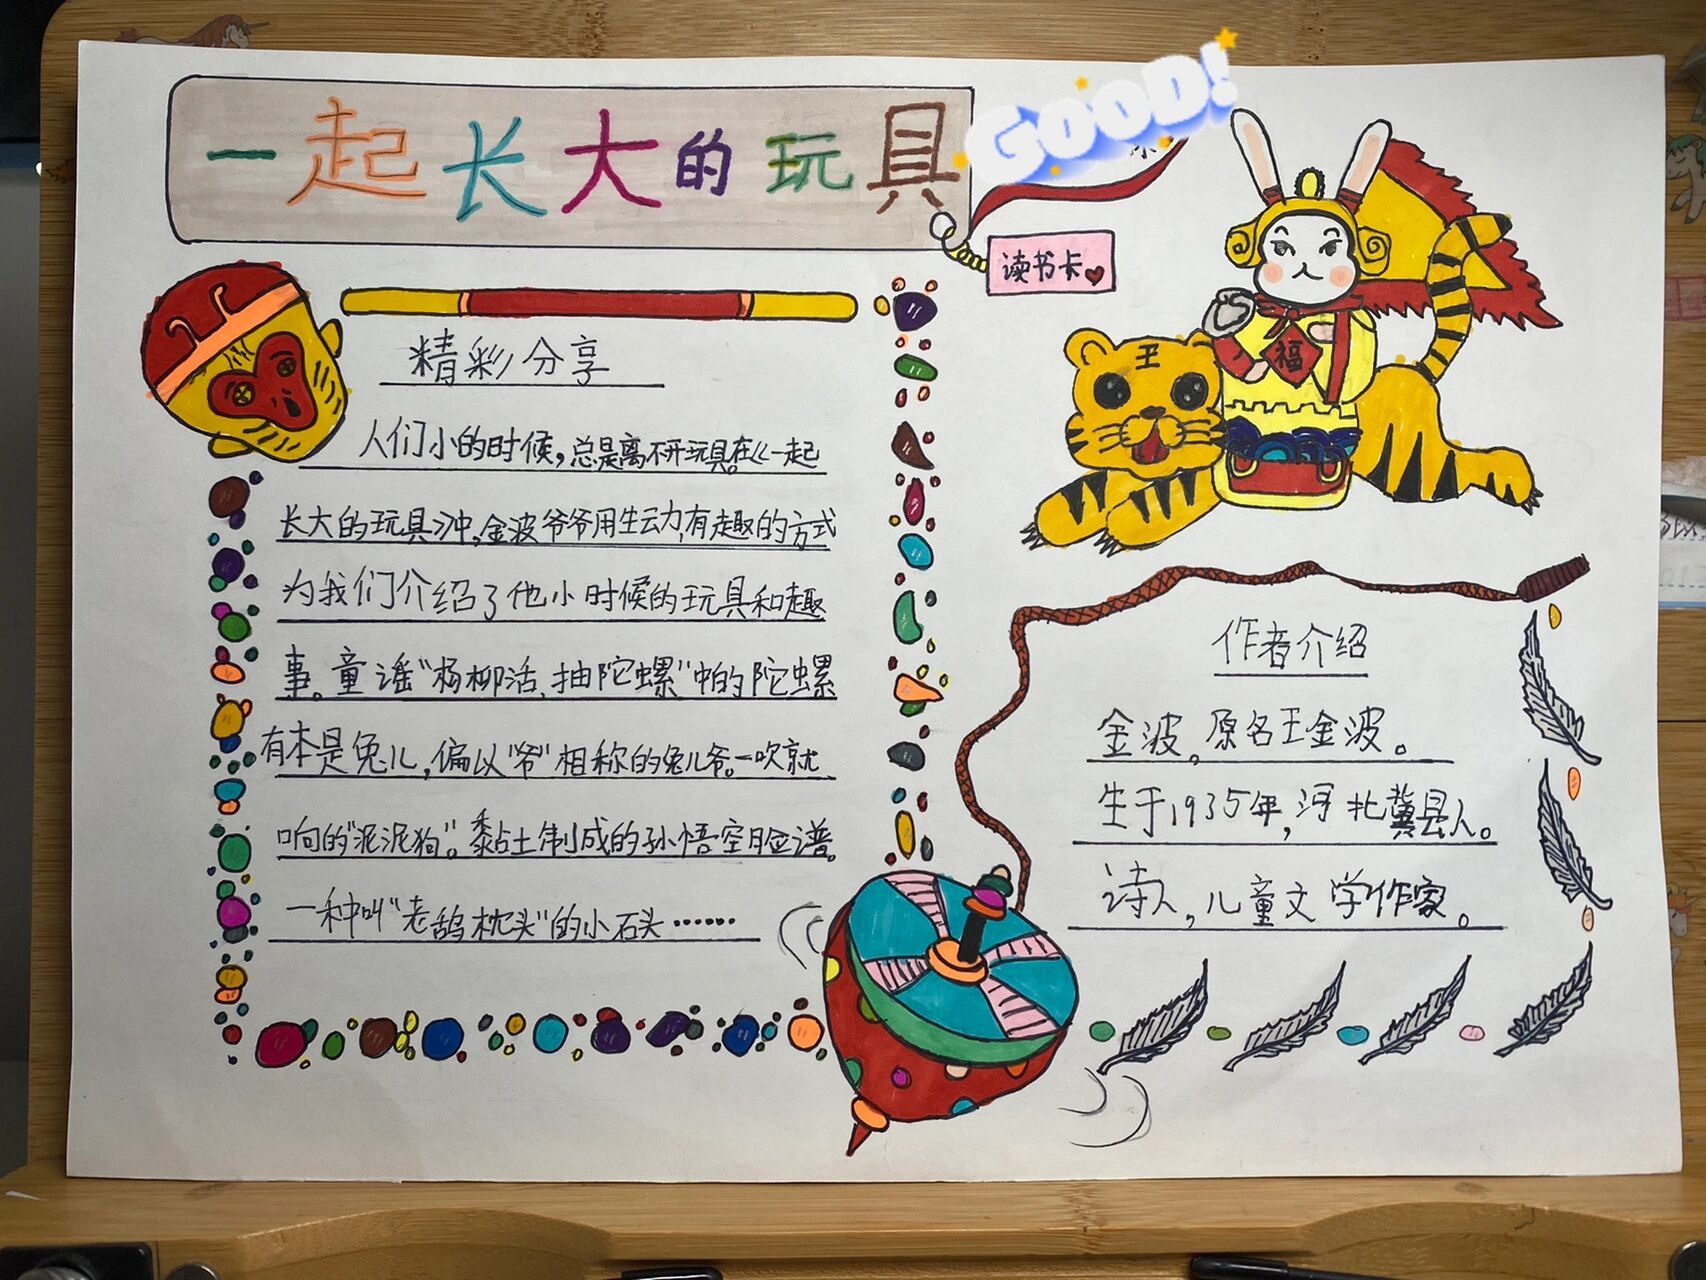 一起长大的玩具
GOOD!
读书卡
福
王
精彩分享
人们小的时候，总是离不开玩具。在《一起
长大的玩具》中，金波爷爷用生动，有趣的方式
为我们介绍了他小时候的玩具和趣
事。童谣“杨柳活，抽陀螺”中的陀螺
有本是兔儿，偏以“爷”相称的兔儿爷。一吹就
响的“泥泥狗”。黏土制成的孙悟空脸谱。
一种叫“老鸹枕头”的小石头……
作者介绍
金波，原名王金波。
生于1935年，河北冀县人。
诗人，儿童文学作家。